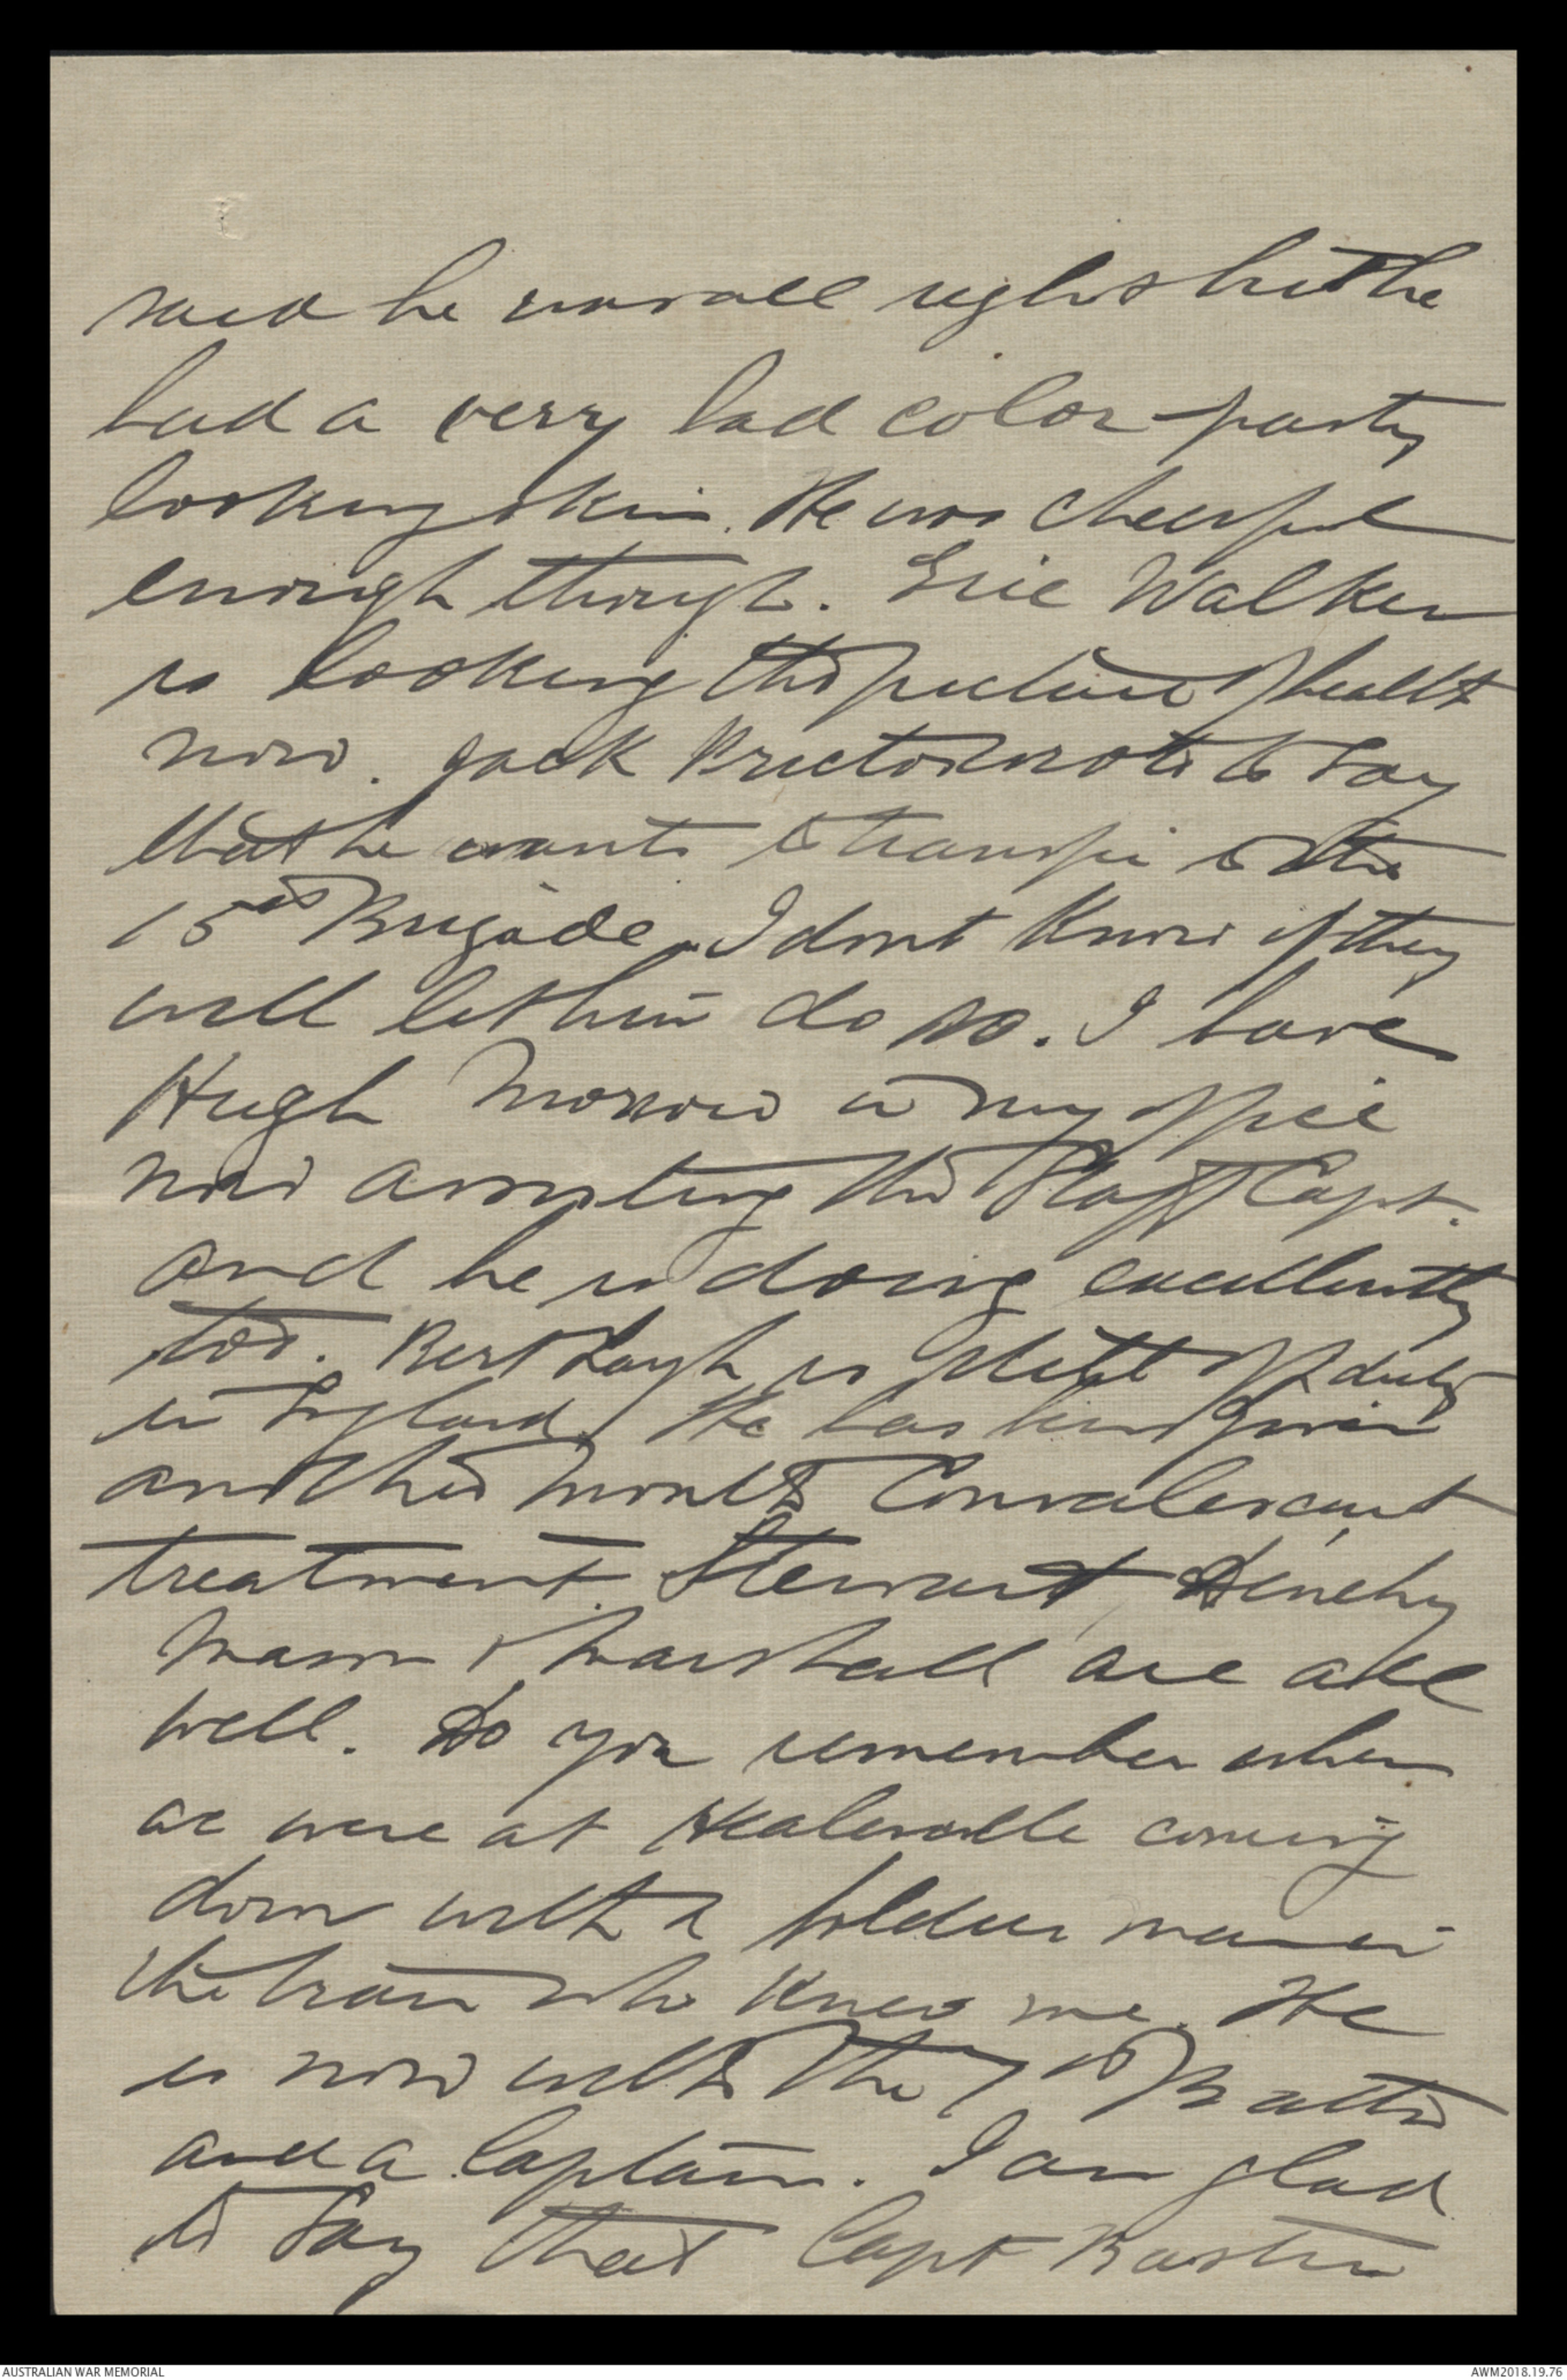 said he was all right but he
had a very bad color - pasty
looking skin. He was cheerful
enough though. Eric Walker
is looking the picture of health
now. Jack Procter wrote to say
that he wants to transfer to the
15th Brigade. I dont know if they
will let him do so. I have
Hugh Morrow in my office
now assisting the Staff Capt.
and he is doing excellently
too. Bert Layh is still off duty
in England. He has been given
another months Convalescent
treatment. Stewart, Denehy
Mason & Marshall are all
well. Do you remember when
we were at Healesville coming
down with a soldier man in
the train who knew me. He
is now with the 7th Battn
and a Captain. I am glad
to say that Capt Bastin
AUSTRALIAN WAR MEMORIAL
AWM2018.19.76